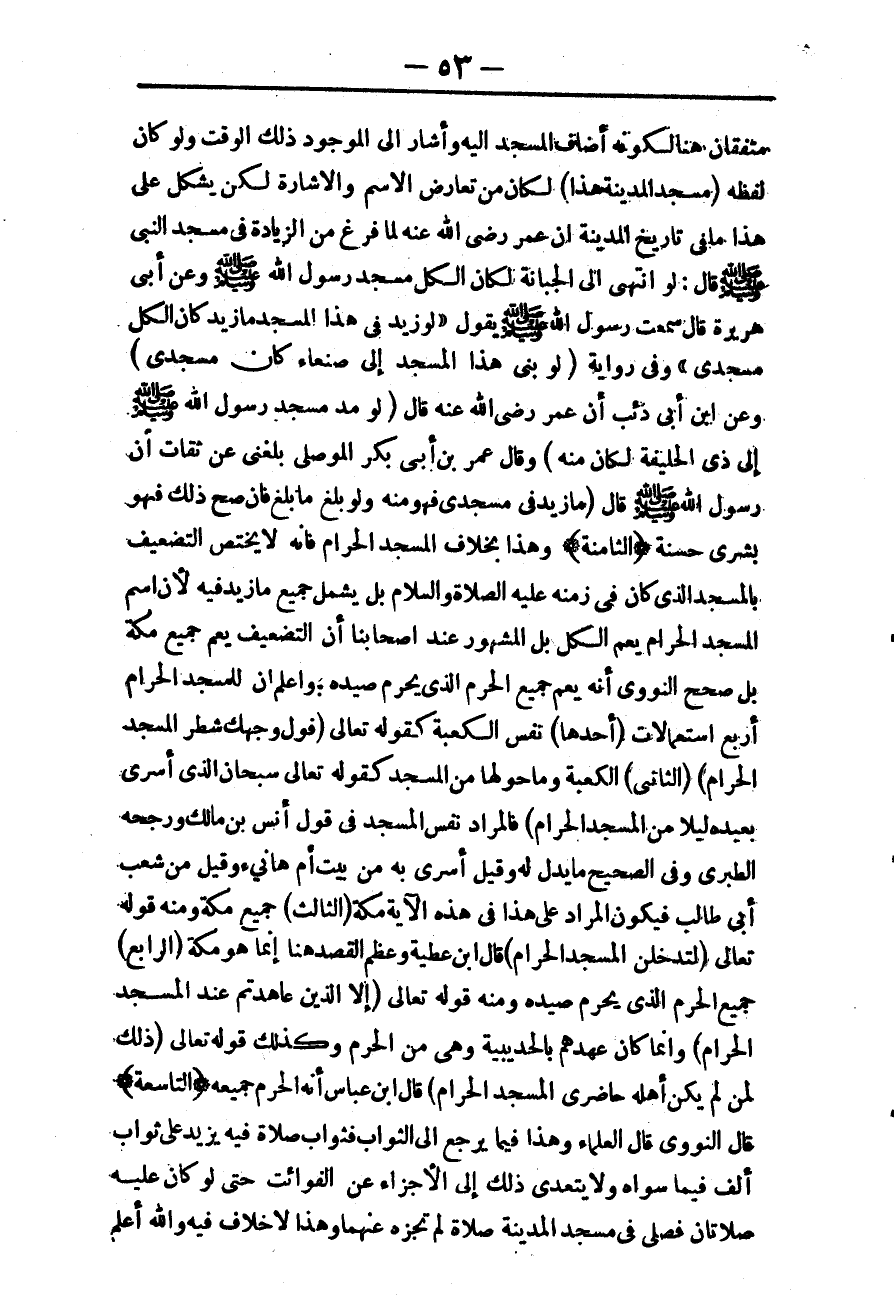 — ٥٣ —
متفقان هنا لكونه أضاف المسجد اليه وأشار الى الموجود ذلك الوقت ولو كان
لفظه (مسجد المدينة هذا) لكان من تعارض الاسم والاشارة لكن يشكل على
هذا ما فى تاريخ المدينة ان عمر رضى الله عنه لما فرغ من الزيادة فى مسجد النبى
ﷺ قال : لو انتهى الى الجبانة لكان الكل مسجد رسول الله ﷺ وعن أبى
هريرة قال سمعت رسول الله ﷺ يقول «لو زيد فى هذا المسجد ما زيد كان الكل
مسجدى» وفى رواية ( لو بنى هذا المسجد إلى صنعاء كان مسجدى )
وعن ابن أبى ذئب أن عمر رضى الله عنه قال ( لو مد مسجد رسول الله ﷺ
إلى ذى الحليفة لكان منه ) وقال عمر بن أبى بكر الموصلى بلغنى عن ثقات أن
رسول الله ﷺ قال (ما زيد فى مسجدى فهو منه ولو بلغ ما بلغ فان صح ذلك فهو
بشرى حسنة ﴿الثامنة﴾ وهذا بخلاف المسجد الحرام فانه لا يختص التضعيف
بالمسجد الذى كان فى زمنه عليه الصلاة والسلام بل يشمل جميع ما زيد فيه لأن اسم
المسجد الحرام يعم الكل بل المشهور عند اصحابنا أن التضعيف يعم جميع مكة
بل صحح النووى أنه يعم جميع الحرم الذى يحرم صيده : واعلم ان للمسجد الحرام
أربع استعمالات (أحدها) نفس الكعبة كقوله تعالى (فول وجهك شطر المسجد
الحرام) (الثانى) الكعبة وما حولها من المسجد كقوله تعالى سبحان الذى أسرى
بعبده ليلا من المسجد الحرام) فالمراد نفس المسجد فى قول أنس بن مالك ورجحه
الطبرى وفى الصحيح ما يدل له وقيل أسرى به من بيت أم هانىء وقيل من شعب
أبى طالب فيكون المراد على هذا فى هذه الآية مكة (الثالث) جميع مكة ومنه قوله
تعالى (لتدخلن المسجد الحرام) قال ابن عطية وعظم القصد هنا إنما هو مكة (الرابع)
جميع الحرم الذى يحرم صيده ومنه قوله تعالى (إلا الذين عاهدتم عند المسجد
الحرام) وانما كان عهدهم بالحديبية وهى من الحرم وكذلك قوله تعالى (ذلك
لمن لم يكن أهله حاضرى المسجد الحرام) قال ابن عباس أنه الحرم جميعه ﴿التاسعة﴾
قال النووى قال العلماء وهذا فيما يرجع الى الثواب فثواب صلاة فيه يزيد على ثواب
ألف فيما سواه ولا يتعدى ذلك إلى الأجزاء عن الفوائت حتى لو كان عليه
صلاتان فصلى فى مسجد المدينة صلاة لم تجزه عنهما وهذا لا خلاف فيه والله أعلم